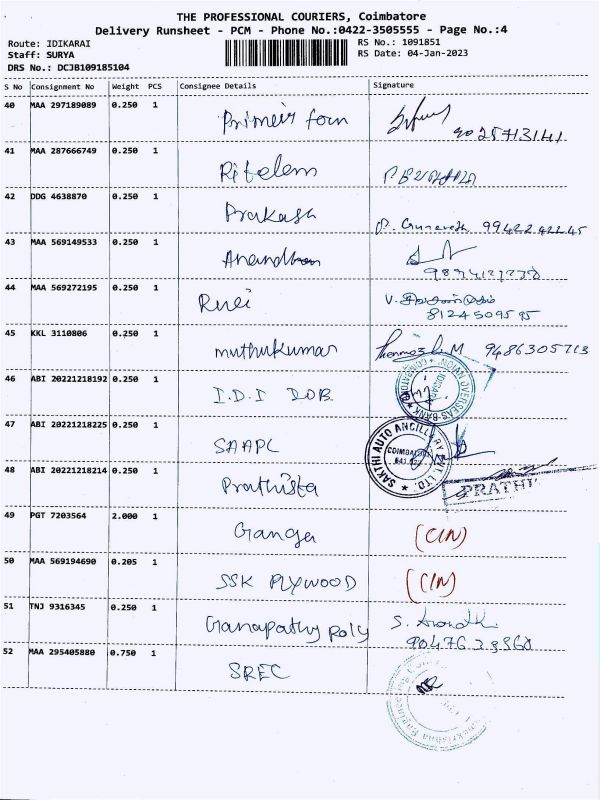 THE PROFESSIONAL COURIERS, Coimbatore
Delivery Runsheet - PCM - Phone No.:0422-3505555 - Page No.:4
Route: IDIKARAI
RS No.: 1091851
Staff: SURYA
RS Date: 04-Jan-2023
DRS No.: DCJB109185104
S No Consignment No Weight PCS Consignee Details Signature
40 MAA 297189089 0.250 1
9025713141
41 MAA 287666749 0.250 1 Ritelem
42 DDG 4638870 0.250 1 Prakash
43 MAA 569149533 0.250 1
44 MAA 569272195 0.250 1
8124509595
45 KKL 3110806 0.250 1 muthukumar M 9486305713
46 ABI 20221218192 0.250 1 I.D.I DOB. INDIAN OVERSEAS BANK
47 ABI 20221218225 0.250 1 SAAPL SAKTHI AUTO ANCILLARY PVT. LTD. COIMBATORE
48 ABI 20221218214 0.250 1 Prathista PRATHI
49 PGT 7203564 2.000 1 Ganga (CIN)
50 MAA 569194690 0.205 1 SSK PLYWOOD (CIN)
51 TNJ 9316345 0.250 1 Ganapathy Poly S.
52 MAA 295405880 0.750 1 SREC